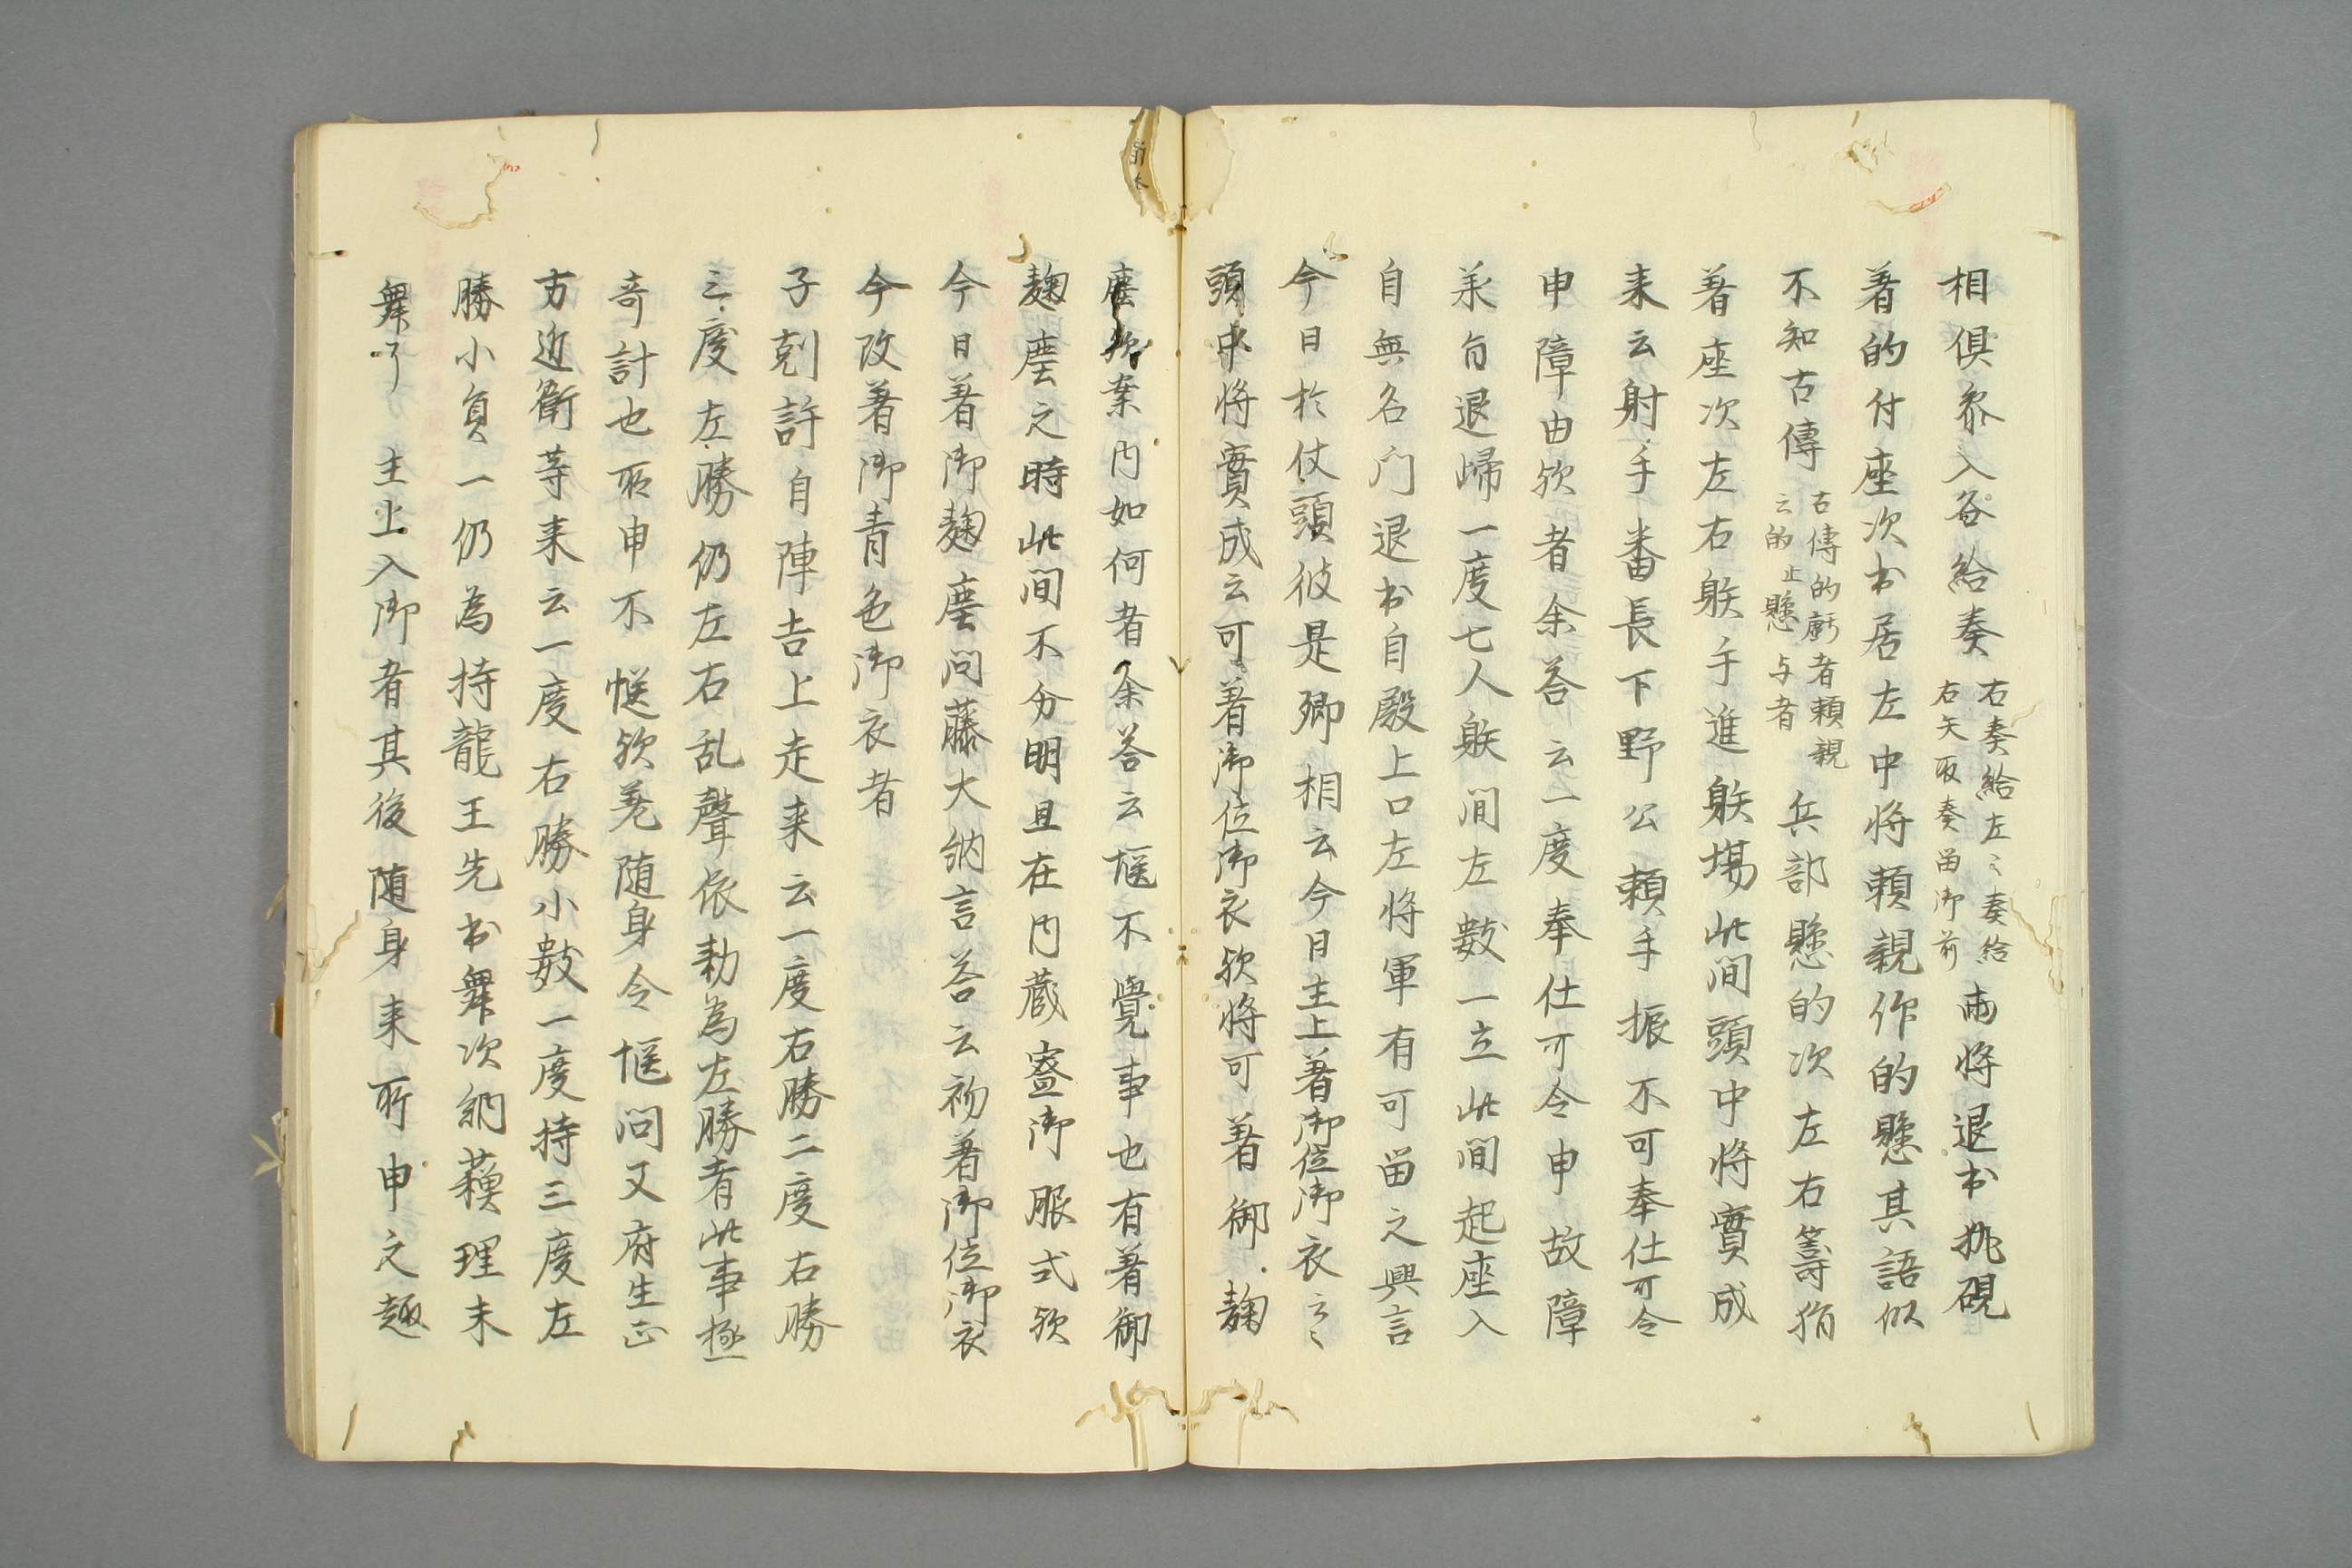 相倶参入各給奏右奏給左〻奏給右矢取奏留御前両将退出执硯
着的付座次出居左中将頼親作的懸其語似
不知古傳古傳的齘者頼親云的止懸与者兵部懸的次左右籌指
着座次左右躾手進躾場此間頭中将實成
来云射手番長下野公頼手振不可奉仕可令
申障由欤者余答云一度奉仕可令申故障
美旨退帰一度七人躾間左數一立此間起座入
自無名门退出自殿上口左将軍有可留之興言
今日於仗頭彼是卿相云今日主上着御位御衣云〻
頭中将實成云可着御位御衣欤将可着御麹
塵欤案内如何者余答云慥不覺事也有着御
麹塵之時此间不分明且在内蔵寮御服式欤
今日着御麹塵问藤大納言答云初着御位御衣
今改着御青色御衣者
子剋許自陣吉上走来云一度右勝二度右勝
三度左勝仍左右乱聲依勅為左勝者此事極
奇計也所申不慥欤差随身令慥问又府生正
方近衛等来云一度右勝小數一度持三度左
勝小負一仍為持龍王先出舞次納蘓理未
舞了主上入御者其後随身来所申之趣